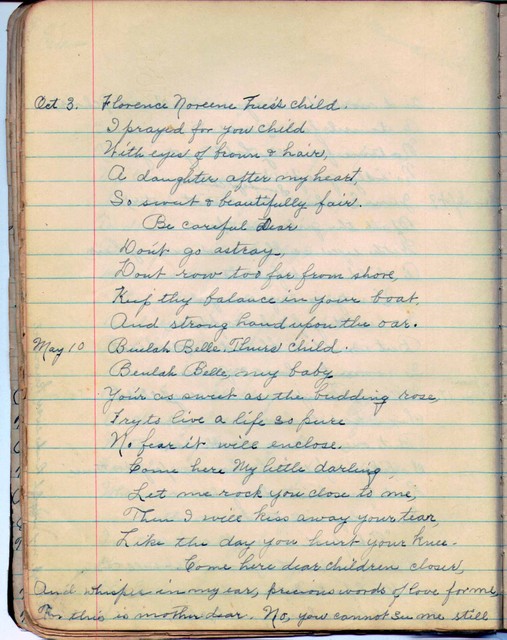 Oct 3. Florence Noreene Tues's child.
I prayed for you child
With eyes of brown & hair,
A daughter after my heart,
So sweet & beautifully fair.
Be careful dear
Dont go astray,
Dont row too far from shore,
Keep thy balance in your boat,
And strong hand upon the oar.
May 10 Beulah Belle. Thurs child.
Beulah Belle, my baby
You're as sweet as the budding rose,
Try to live a life so pure
No fear it will enclose.
Come here My little darling,
Let me rock you close to me,
Then I will kiss away your tear,
Like the day you hurt your knee.
Come here dear children closer,
And whisper in my ear, precious words of love for me,
For this is mother dear. No, you cannot see me still